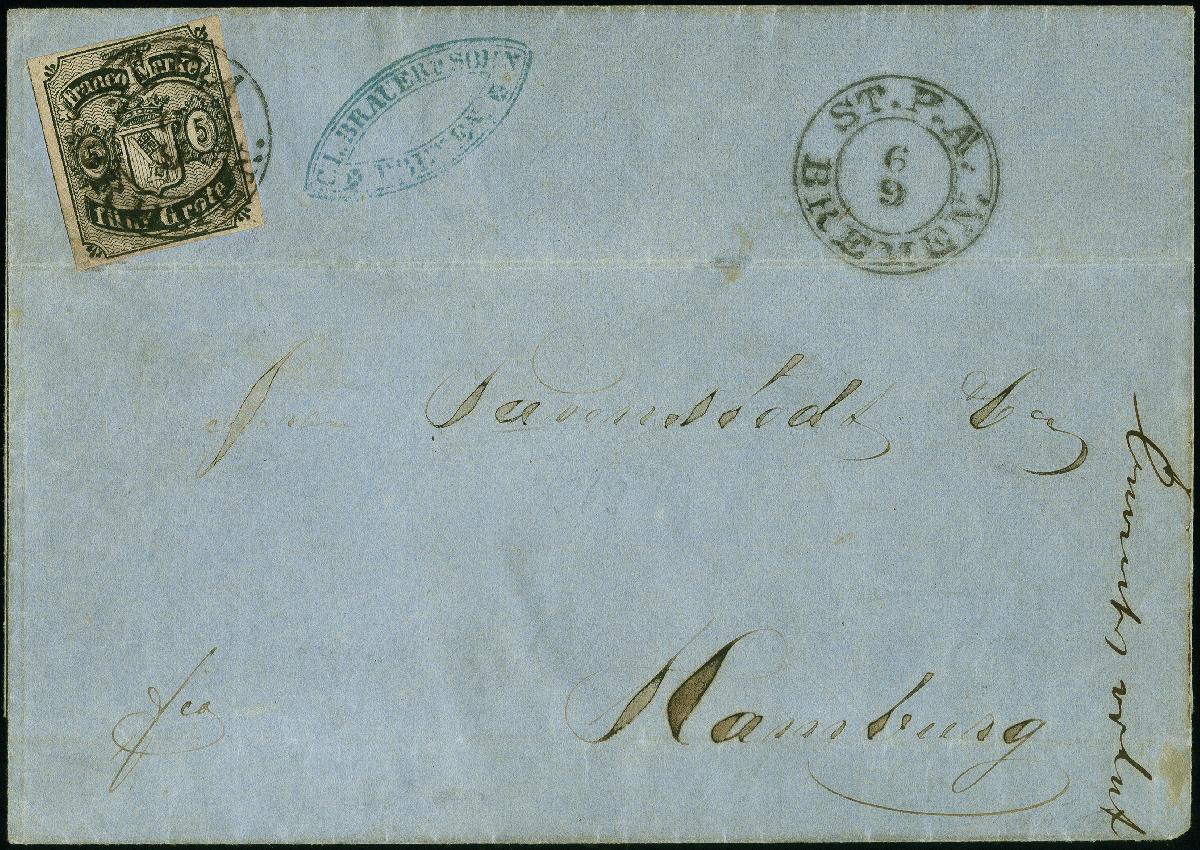 Franco Marke
5 5
fünf Grote
CL. BRAUERT SOHN
BREMEN
ST. P. A.
6
9
BREMEN.
Tavenstedt
fco
Hamburg